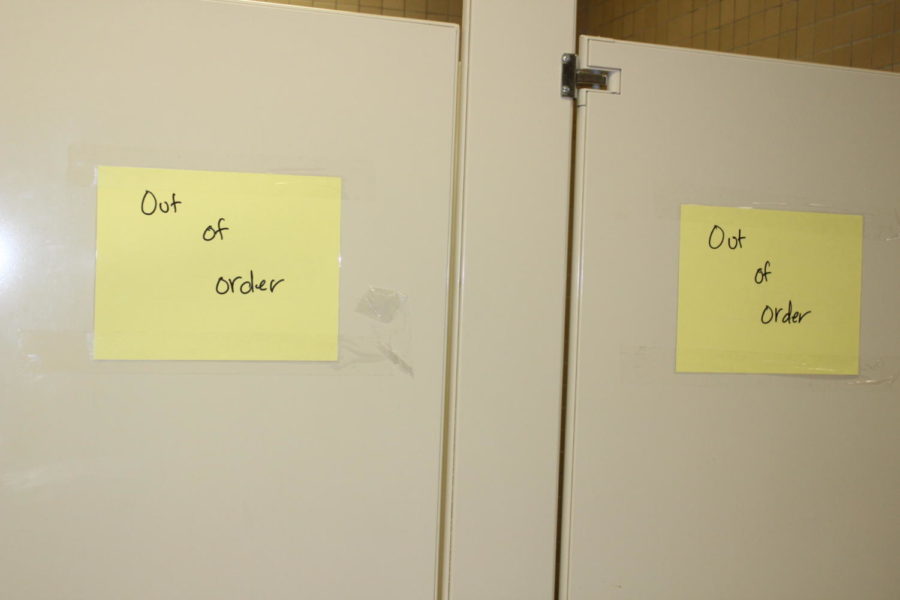 Out
of
order
Out
of
order